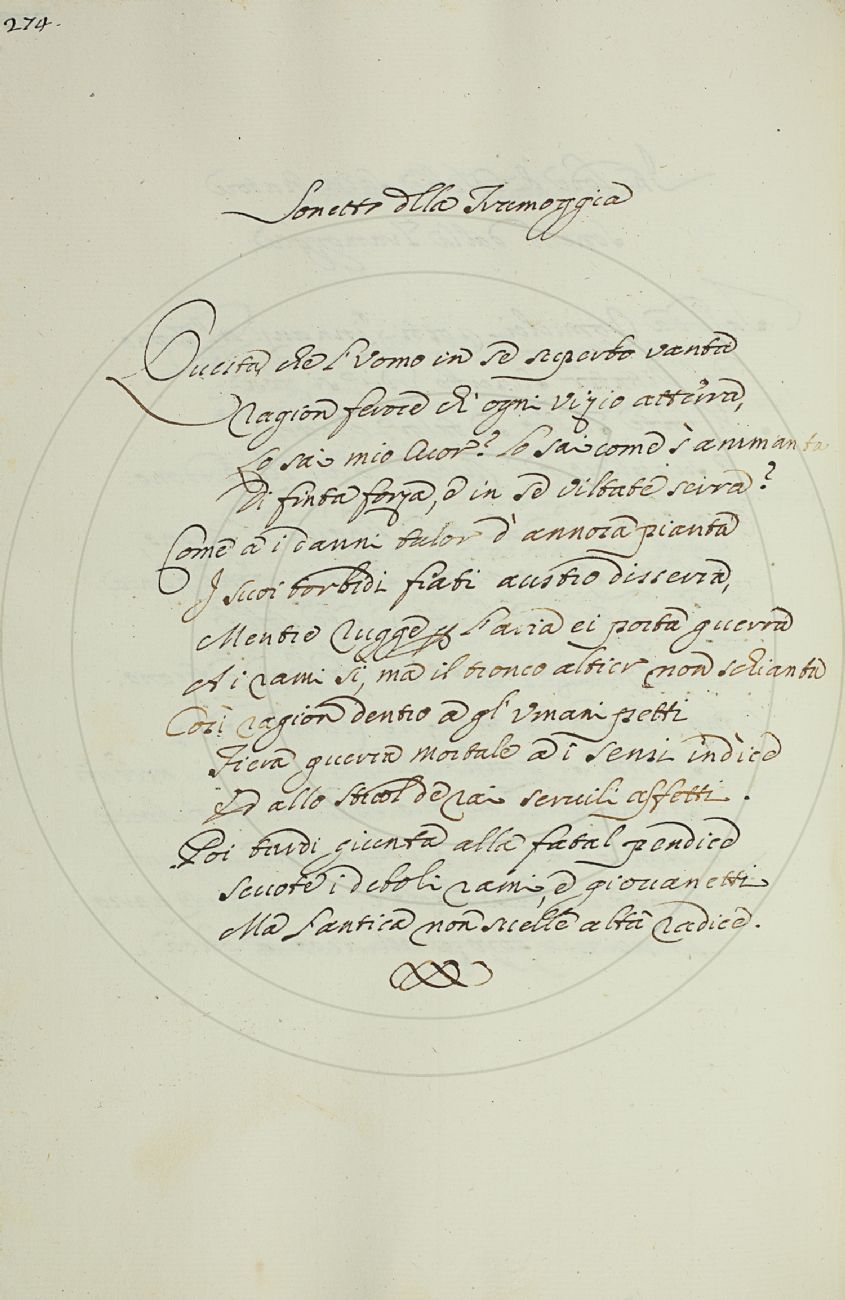 274.
Sonetto della Tramoggia
Questa che l'Uomo in se superbo vanta
Ragion feroce ch' ogni vizio atterra,
Lo sai mio Cuor? lo sai come s'ammanta
Di finta forza, e in se viltate serra?
Come a i danni talor d'annosa pianta
I suoi torbidi fiati austro disserra,
Mentre rugge per l'aria ei porta guerra
A i rami sì, ma il tronco altier non schianta
Così ragion dentro a gl'umani petti
Fiera guerra mortale a i sensi indice
Ed allo stuol de rai servili affetti.
Poi tardi giunta alla fatal pendice
Scuote i deboli rami, e giovanetti
Ma l'antica non svelle alta radice.